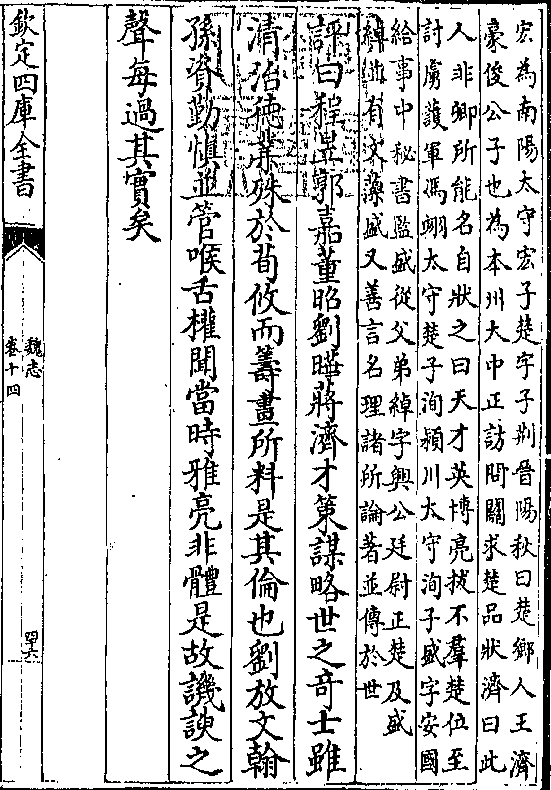 宏為南陽太守宏子楚字子荆晉陽秋曰楚鄉人王濟
豪俊公子也為本州大中正訪問關求楚品狀濟曰此
人非卿所能名自狀之曰天才英博亮拔不羣楚位至
討虜護軍馮翊太守楚子洵潁川太守洵子盛字安國
給事中秘書監盛從父弟綽字興公廷尉正楚及盛
綽並有文藻盛又善言名理諸所論著並傳於世
評曰程昱郭嘉董昭劉曄蔣濟才策謀略世之奇士雖
清治德業殊於荀攸而籌畫所料是其倫也劉放文翰
孫資勤慎並管喉舌權聞當時雅亮非體是故譏諛之
聲每過其實矣
欽定四庫全書
魏志
卷十四
四六